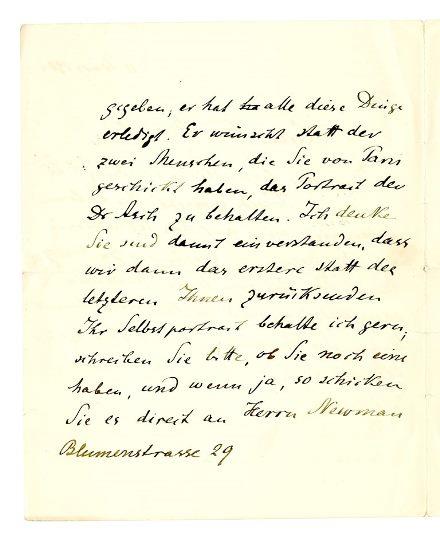 gegeben, er hat alle diese Dinge
erledigt. Er wünscht statt der
zwei Menschen, die Sie von Paris
geschickt haben, das Portrait des
Dr Asch zu behalten. Ich denke
Sie sind damit einverstanden, dass
wir dann das erstere statt des
letzteren Ihnen zurücksenden
Ihr Selbstportrait behalte ich gern,
schreiben Sie bitte, ob Sie noch eins
haben, und wenn ja, so schicken
Sie es direct an Herrn Newman
Blumenstrasse 29